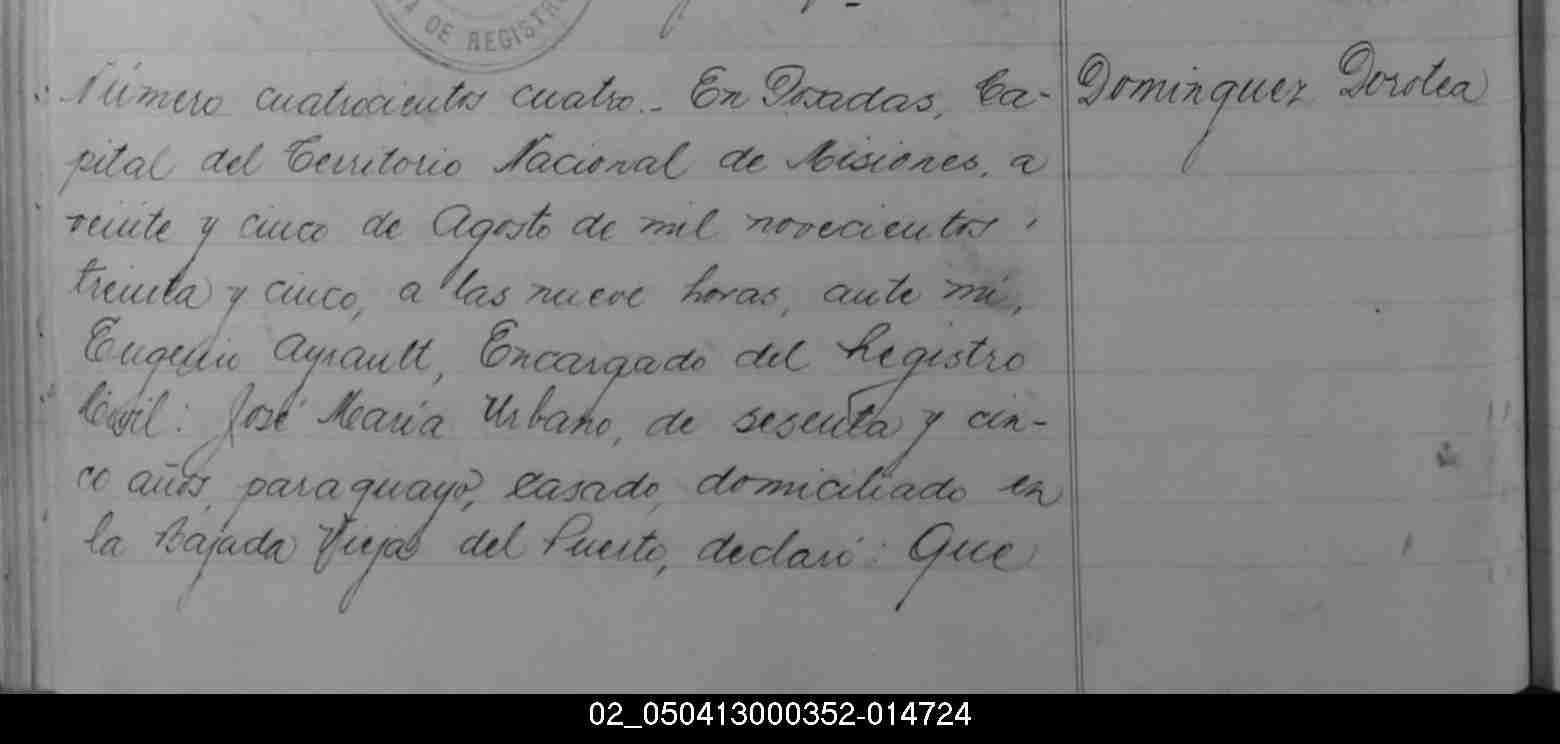 DE REGISTRO
Número cuatrocientos cuatro.- En Posadas, Ca-
pital del Territorio Nacional de Misiones, a
veinte y cinco de Agosto de mil novecientos
treinta y cinco, a las nueve horas, ante mí,
Eugenio Ayrault, Encargado del Registro
Civil: José María Urbano, de sesenta y cin-
co años, paraguayo, casado, domiciliado en
la Bajada Vieja del Puerto, declaró: Que
Dominguez Dorotea
02_050413000352-014724